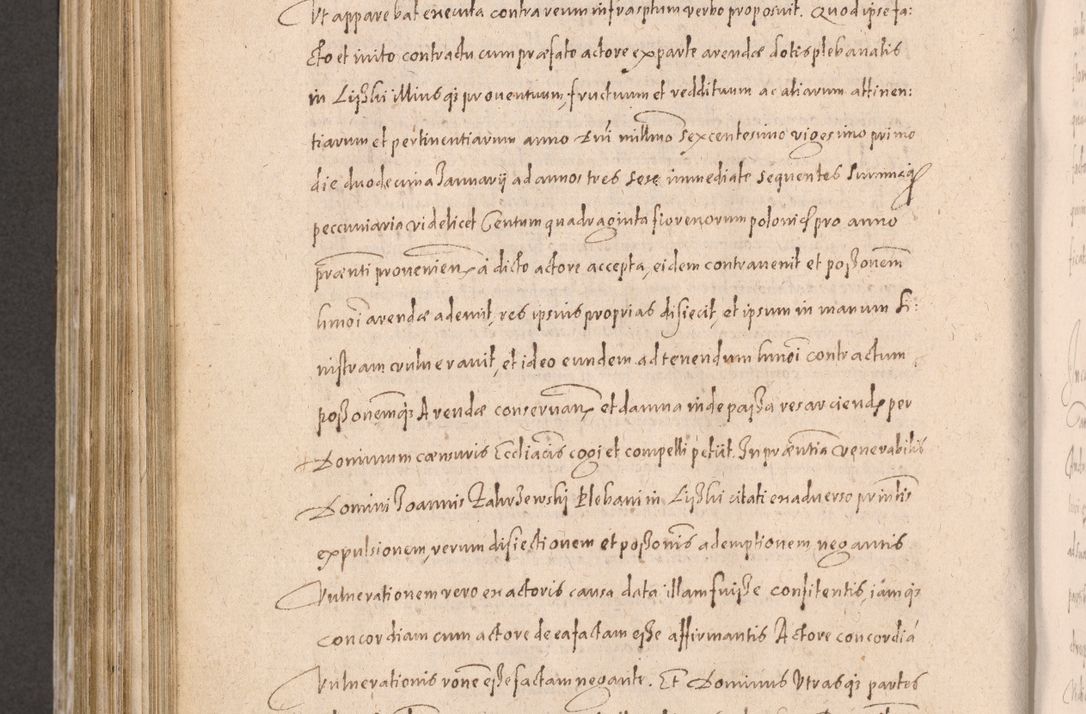 Vt apparebat executa contra reum infrasptum verbo proposuit. Quod ipse fa:
cto et inito contractu cum præfato actore ex parte arendæ dotis plebanalis
in Liszki illiusq; prouentuum, fructuum et reddituum ac aliarum attinen:
tiarum et pertinentiarum anno Dni millmo Sexcentesimo vigesimo primo
die duodecima Januarij ad annos tres sese immediate sequentes Summaq;
peccuniaria videlicet Centum quadraginta florenorum poloni pro anno
præsenti prouenien à dicto actore accepta, eidem contrauenit et poßonem
hmoi arendæ ademit, res ipsius proprias disiecit, et ipsum in manum Si:
nistram vulnerauit, et ideo eundem ad tenendum hmoi contractum
poßonemq; Arendæ conseruan et damna inde paßa resarciend per
Dominum censuris Eccliacis cogi et compelli petiit. In præsentia venerabilis
Domini Joannis Zakrzewskij Plebani in Liszki citati ex aduerso printis
expulsionem, verum disiectionem et poßonis ademptionem negantis
Vulnerationem vero ex actoris causa data illam fuiße confitentis, iamq;
concordiam cum actore de ea factam eße affirmantis Actore concordiã
Vulnerationis rone eße factam negante. Et Dominus Vtrasq; partes